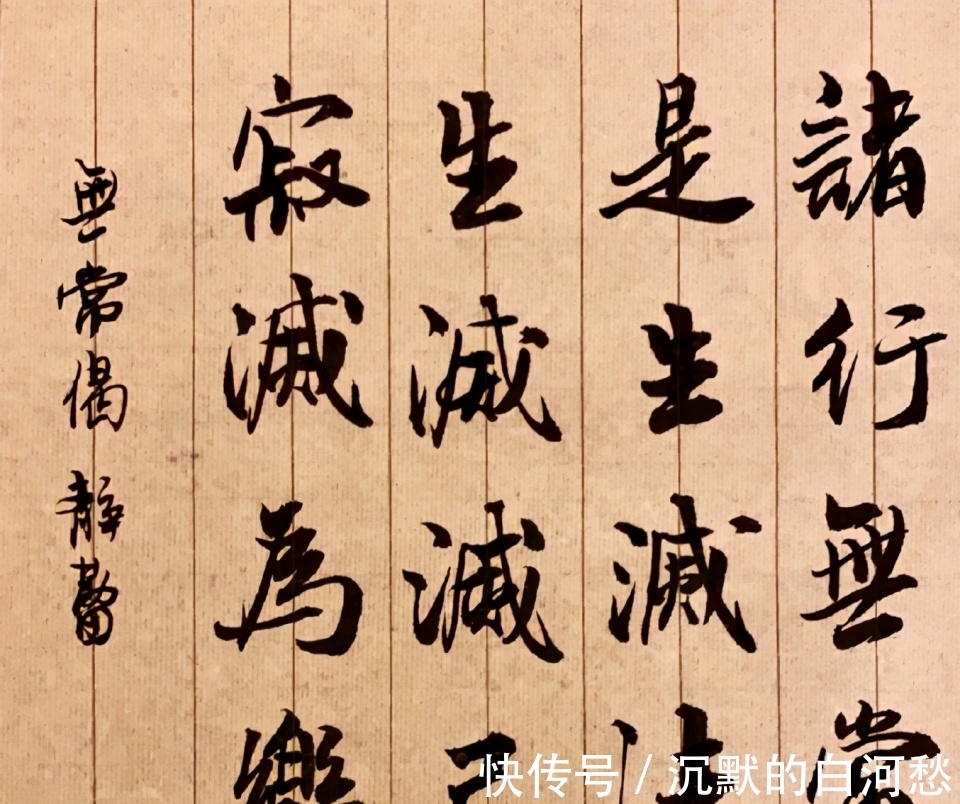 諸行無常
是生滅
生滅滅
寂滅為樂
無常偈 靜
快传号 / 沉默的白河愁